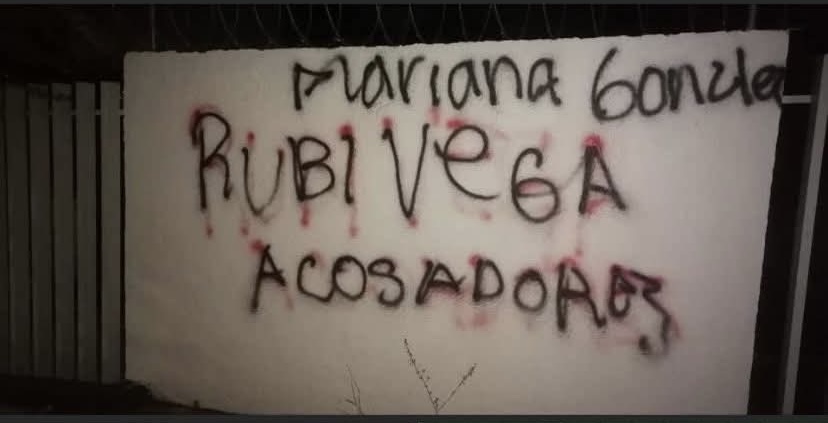 Mariana Gonzle
RUBI VeGA
ACOSADORES